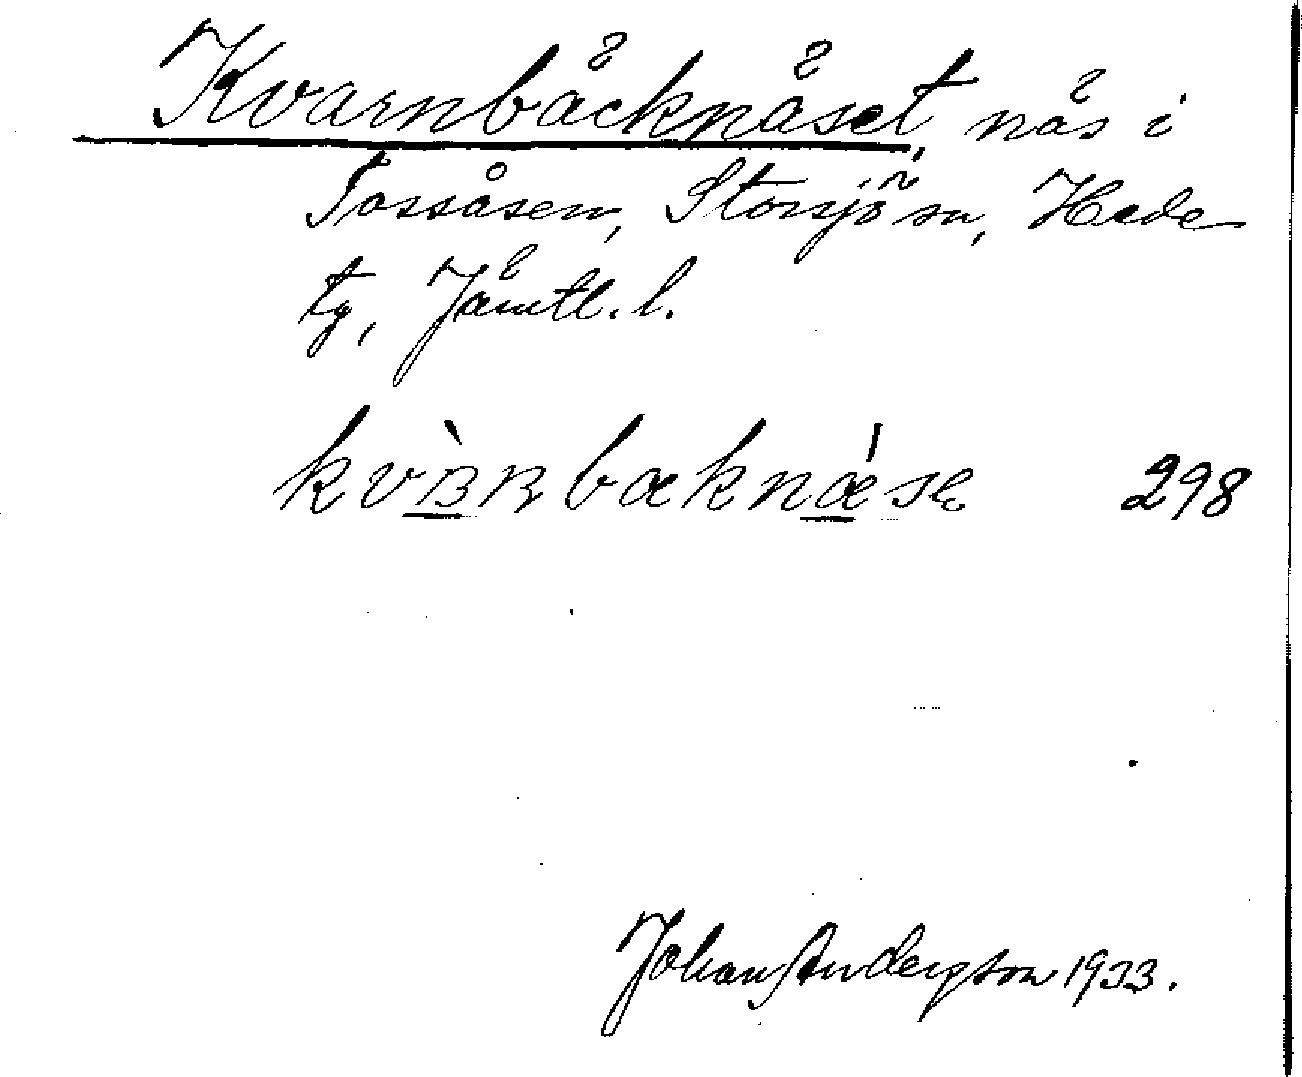 Kvarnbäcknäset, näs i
Tossåsen, Storsjö sn, Hede
tg, Jämtl. l.
kvɜ̀ʀbæknǽsę 298
Johan Anderson 1933.